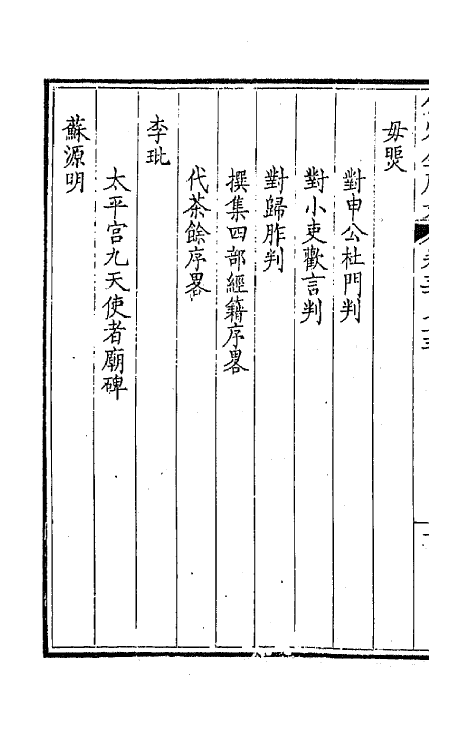 毋煚
對申公杜門判
對小吏歡言判
對歸胙判
撰集四部經籍序畧
代茶餘序畧
李玼
太平宫九天使者廟碑
蘇源明